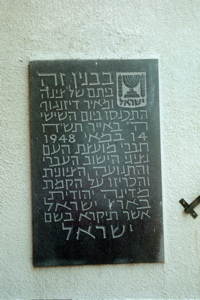 בבנין זה
ביתם של צינה
ומאיר דיזנגוף
ישראל
התכנסו ביום הששי
ה' באייר תש"ח
14 במאי 1948
חברי מועצת העם
נציגי הישוב העברי
והתנועה הציונית
והכריזו על הקמת
מדינה יהודית
בארץ ישראל
אשר תיקרא בשם
ישראל